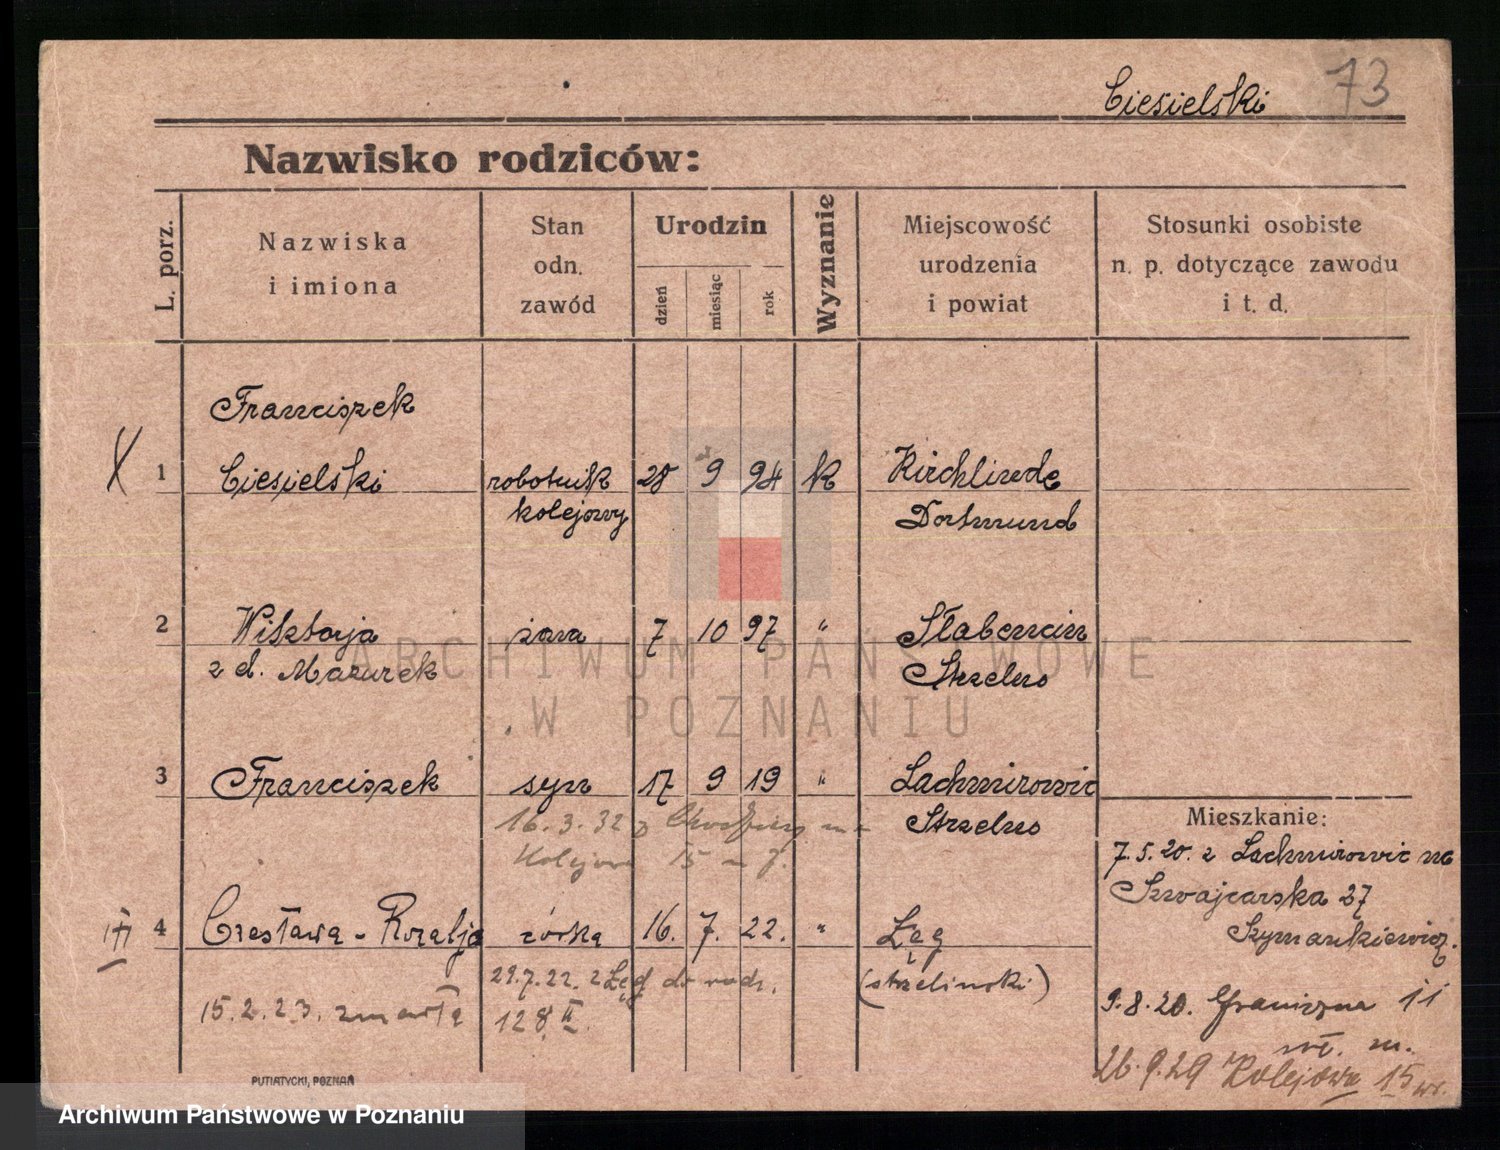 Ciesielski 73
Nazwisko rodziców:
L. porz.
Nazwiska
i imiona
Stan
odn.
zawód
Urodzin
dzień
miesiąc
rok
Wyznanie
Miejscowość
urodzenia
i powiat
Stosunki osobiste
n. p. dotyczące zawodu
i t. d.
Franciszek
1 Ciesielski robotnik 28 9 94 k Kirchlinde
kolejowy Dortmund
2 Wiktorja żona 7 10 97 " Słabencin
z d. Mazurek Strzelno
3 Franciszek syn 17 9 19 " Lachmirowic
Strzelno
16.3.32 z
Kolejowa 15 m 7.
4 Czesława - Rozalja córka 16. 7. 22. " Łęg
29.7.22. z Łęg do rodz. (strzelinski)
15.2.23. zmarła 128 II.
Mieszkanie:
7.5.20. z Lachmirowic na
Szwajcarska 27
Szymankiewicz.
9.8.20. Graniczna 11
m.
26.9.29 Kolejowa 15
PUTIATYCKI, POZNAŃ
ARCHIWUM PAŃSTWOWE
W POZNANIU
Archiwum Państwowe w Poznaniu